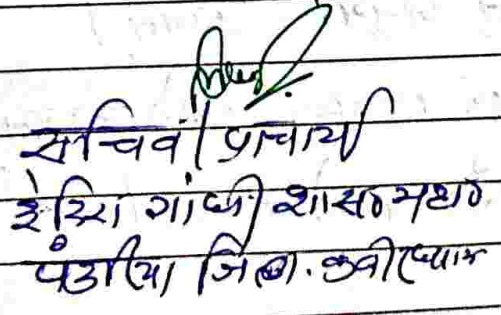 सचिव/प्राचार्य
इंदिरा गांधी शास० महा०
पंडरिया जिला. कबीरधाम